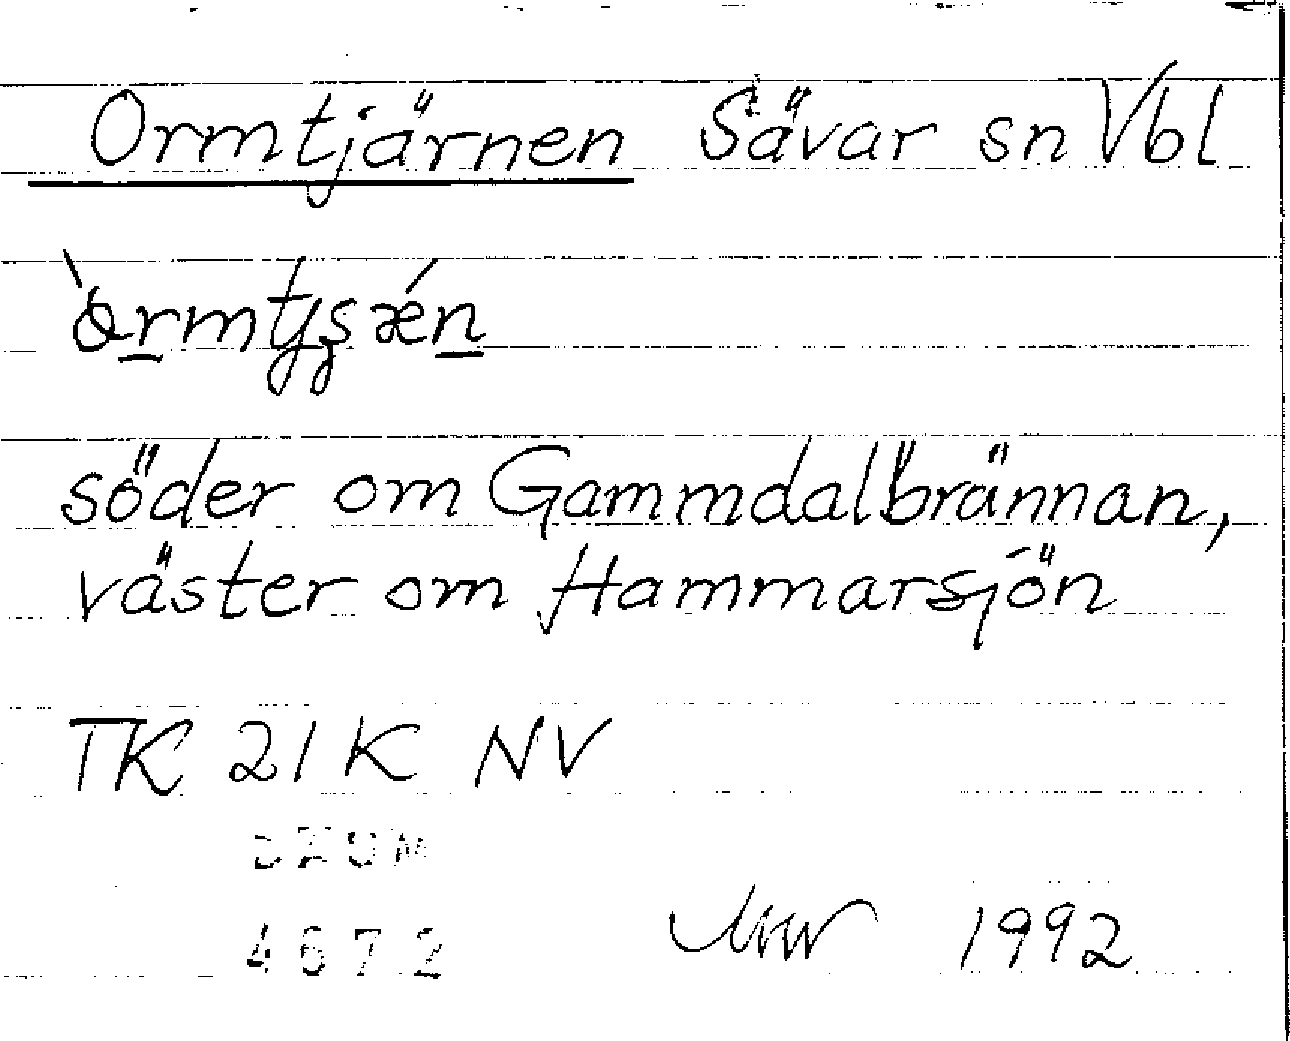 Ormtjärnen Sävar sn Vbl
söder om Gammdalbrännan,
väster om Hammarsjön
TK 21K NV
4672
1992